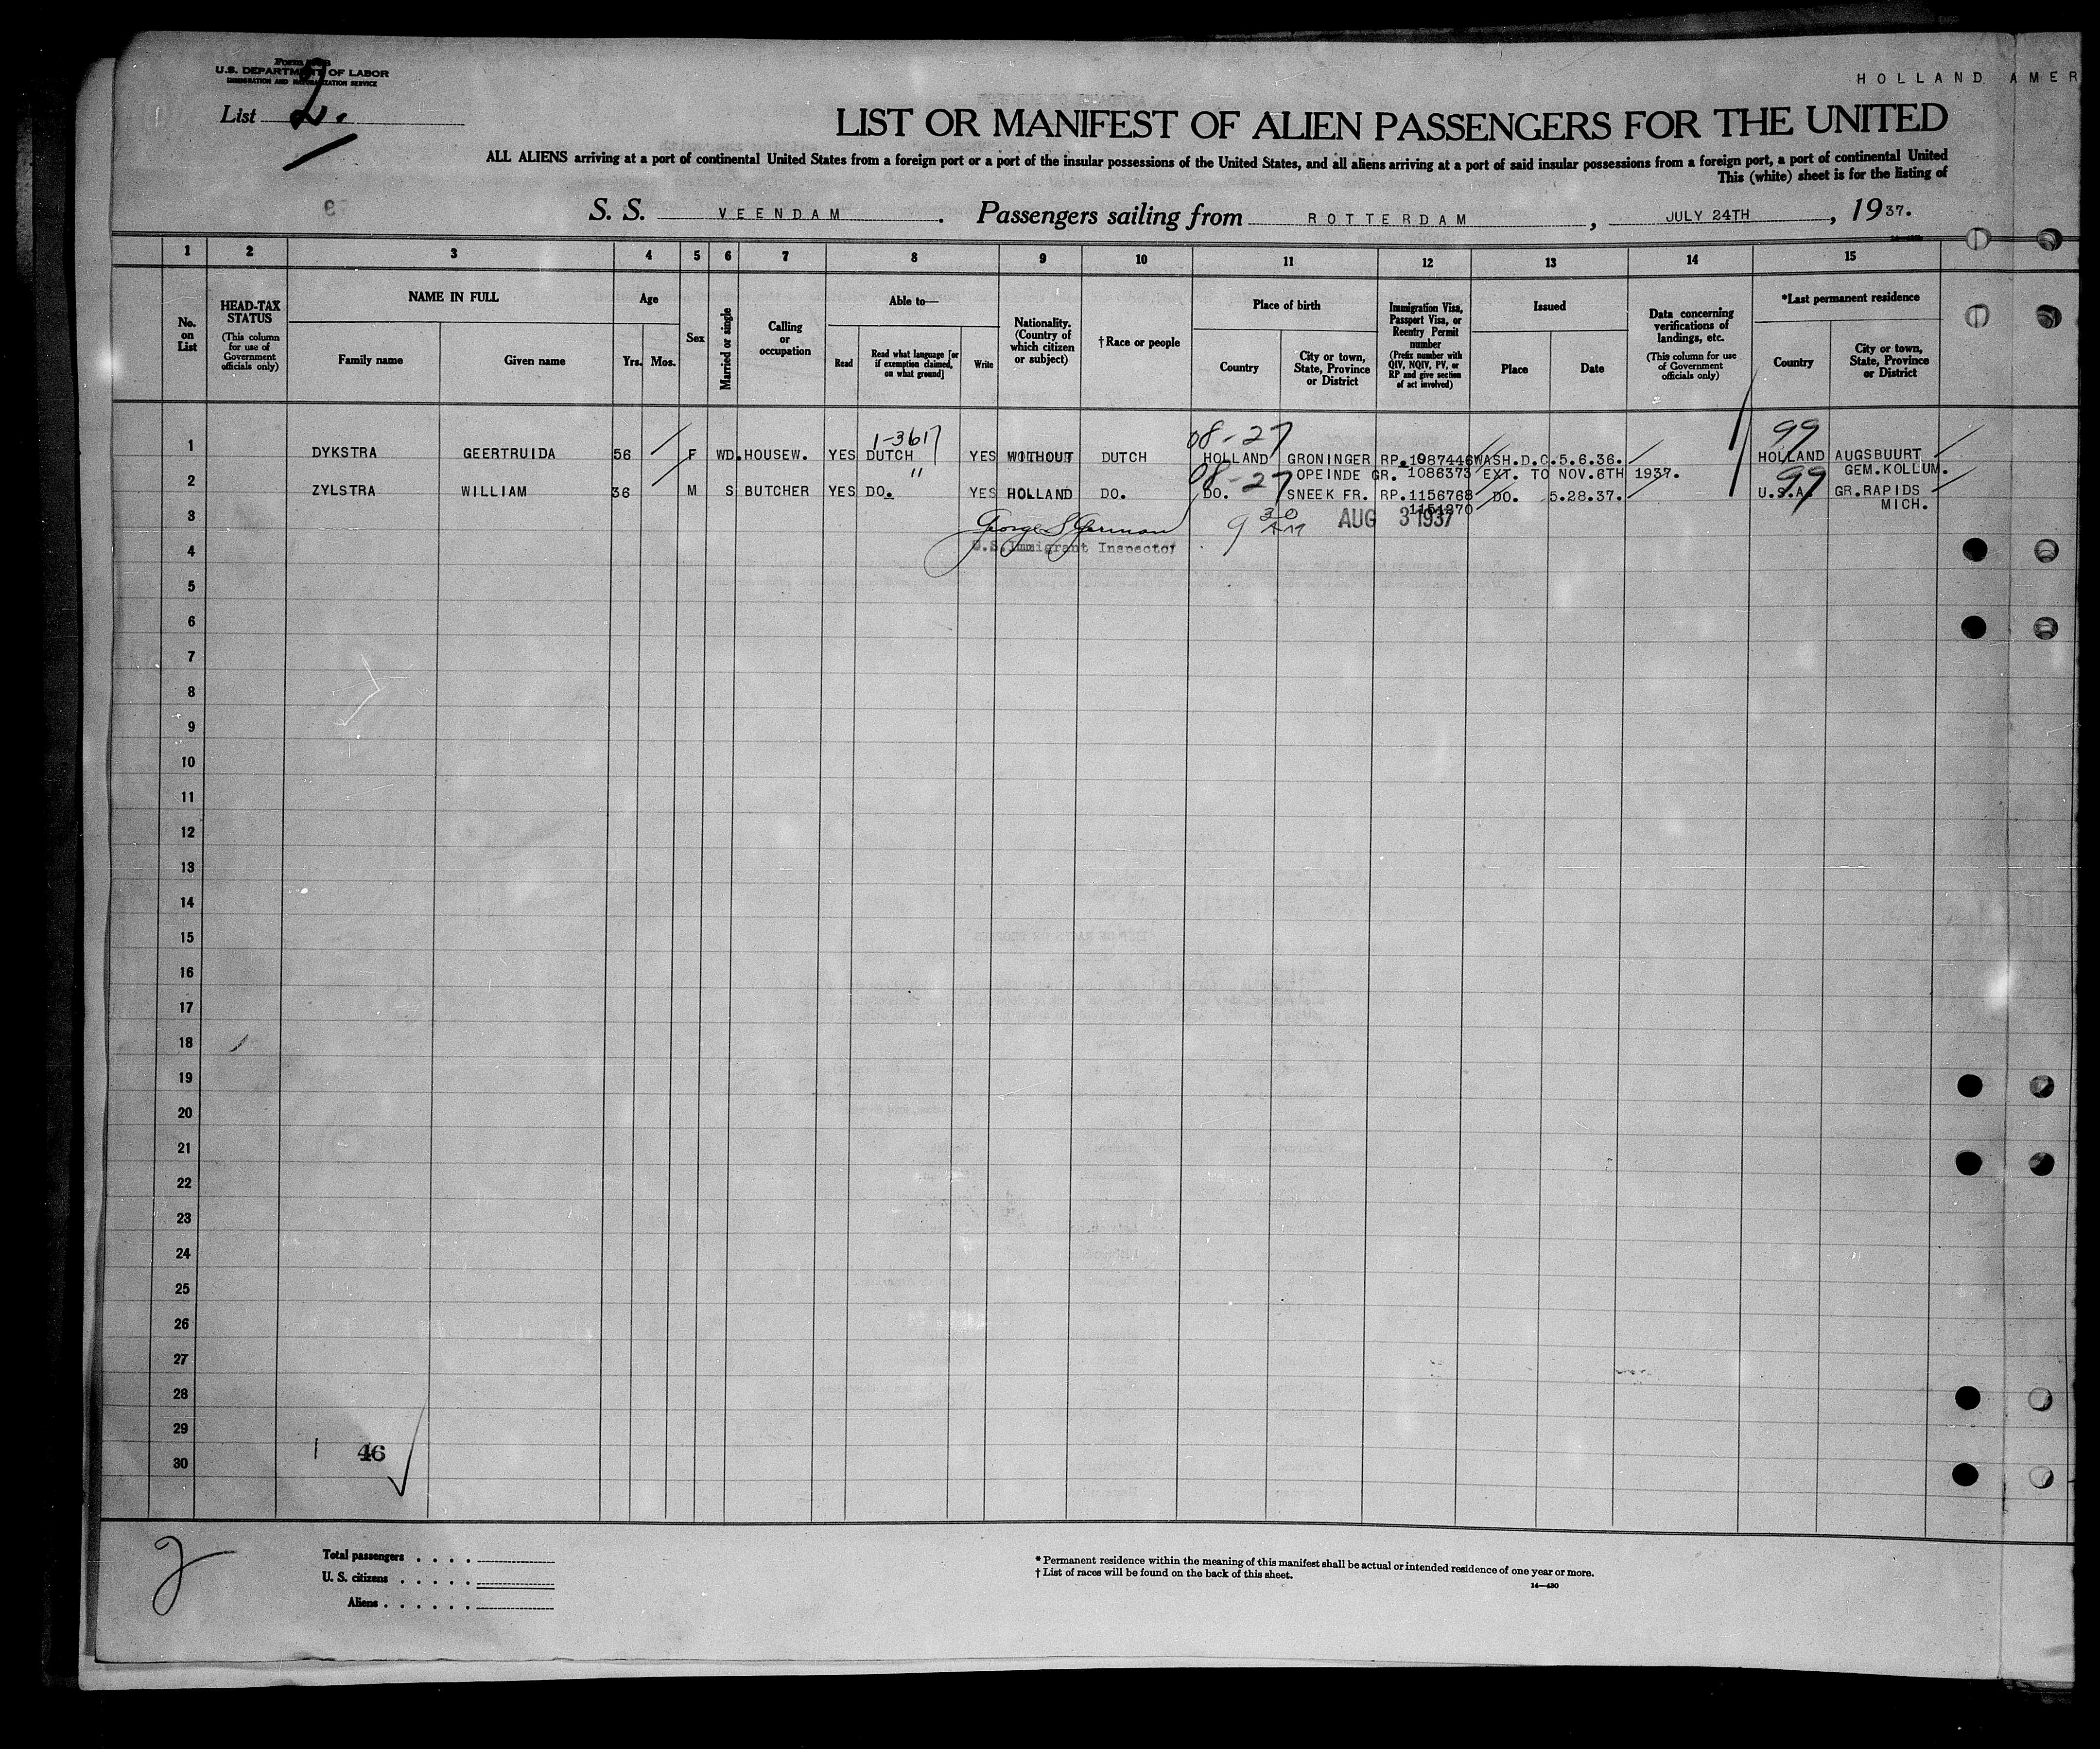 Form
U.S. DEPARTMENT OF LABOR
IMMIGRATION AND NATURALIZATION SERVICE
HOLLAND AMER
List 2.
LIST OR MANIFEST OF ALIEN PASSENGERS FOR THE UNITED
ALL ALIENS arriving at a port of continental United States from a foreign port or a port of the insular possessions of the United States, and all aliens arriving at a port of said insular possessions from a foreign port, a port of continental United
This (white) sheet is for the listing of
S. S. VEENDAM. Passengers sailing from ROTTERDAM, JULY 24TH, 1937.
1 2 3 4 5 6 7 8 9 10 11 12 13 14 15
No. on List
HEAD-TAX STATUS
(This column for use of Government officials only)
NAME IN FULL
Family name Given name
Age
Yrs. Mos.
Sex
Married or single
Calling or occupation
Able to—
Read
Read what language [or if exemption claimed, on what ground]
Write
Nationality. (Country of which citizen or subject)
†Race or people
Place of birth
Country
City or town, State, Province or District
Immigration Visa, Passport Visa, or Reentry Permit number
(Prefix number with QIV, NQIV, PV, or RP and give section of act involved)
Issued
Place Date
Data concerning verifications of landings, etc.
(This column for use of Government officials only)
*Last permanent residence
Country
City or town, State, Province or District
1-3617 08-27 99
1 DYKSTRA GEERTRUIDA 56 F WD. HOUSEW. YES DUTCH YES WITHOUT DUTCH HOLLAND GRONINGER RP.1087446 WASH.D.C. 5.6.36. HOLLAND AUGSBUURT
" 08-27 OPEINDE GR. 1086373 EXT. TO NOV.6TH 1937. 99 GEM.KOLLUM.
2 ZYLSTRA WILLIAM 36 M S BUTCHER YES DO. YES HOLLAND DO. DO. SNEEK FR. RP.1156768 DO. 5.28.37. U.S.A. GR.RAPIDS
1151270 MICH.
3 George S German 9 30 AM AUG 3 1937
4 U.S.Immigrant Inspector
5
6
7
8
9
10
11
12
13
14
15
16
17
18
19
20
21
22
23
24
25
26
27
28
29
30
46
2
Total passengers . . . .
U. S. citizens . . . . .
Aliens . . . . . .
* Permanent residence within the meaning of this manifest shall be actual or intended residence of one year or more.
† List of races will be found on the back of this sheet.
14—430